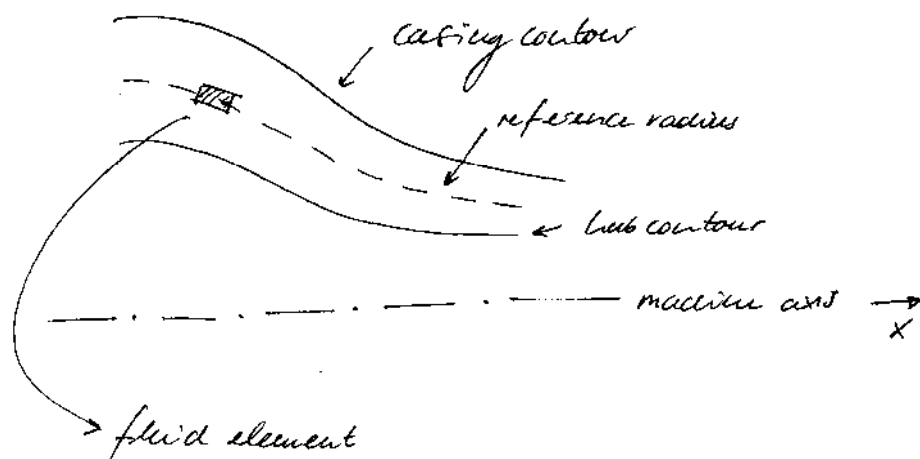 casing contour
reference radius
hub contour
machine axis
x
fluid element